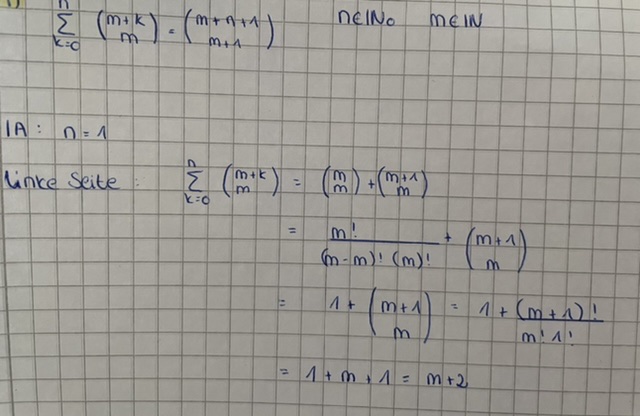 n
∑ (m+k über m) = (m+n+1 über m+1)   n∈ℕ₀   m∈ℕ
k=0
IA: n = 1
linke Seite: n ∑ k=0 (m+k m) = (m m) + (m+1 m)
= m! / (m-m)! (m)! + (m+1 m)
= 1 + (m+1 m) = 1 + (m+1)! / m! 1!
= 1 + m + 1 = m+2